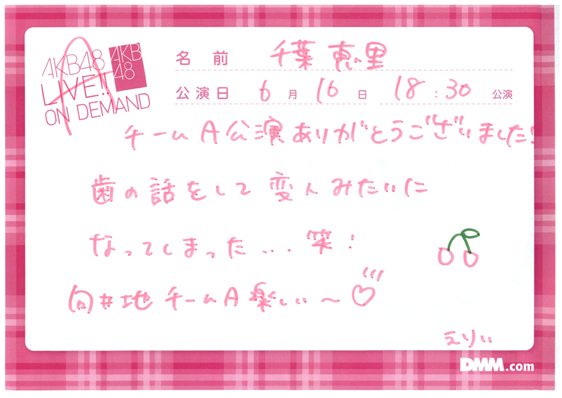 AKB48
LIVE!!
ON DEMAND
AKB
48
名前 千葉恵里
公演日 6月16日 18:30 公演
チームA公演ありがとうございました!
歯の話をして変人みたいに
なってしまった... 笑!
向井地チームA楽しい〜♡
えりい
DMM.com